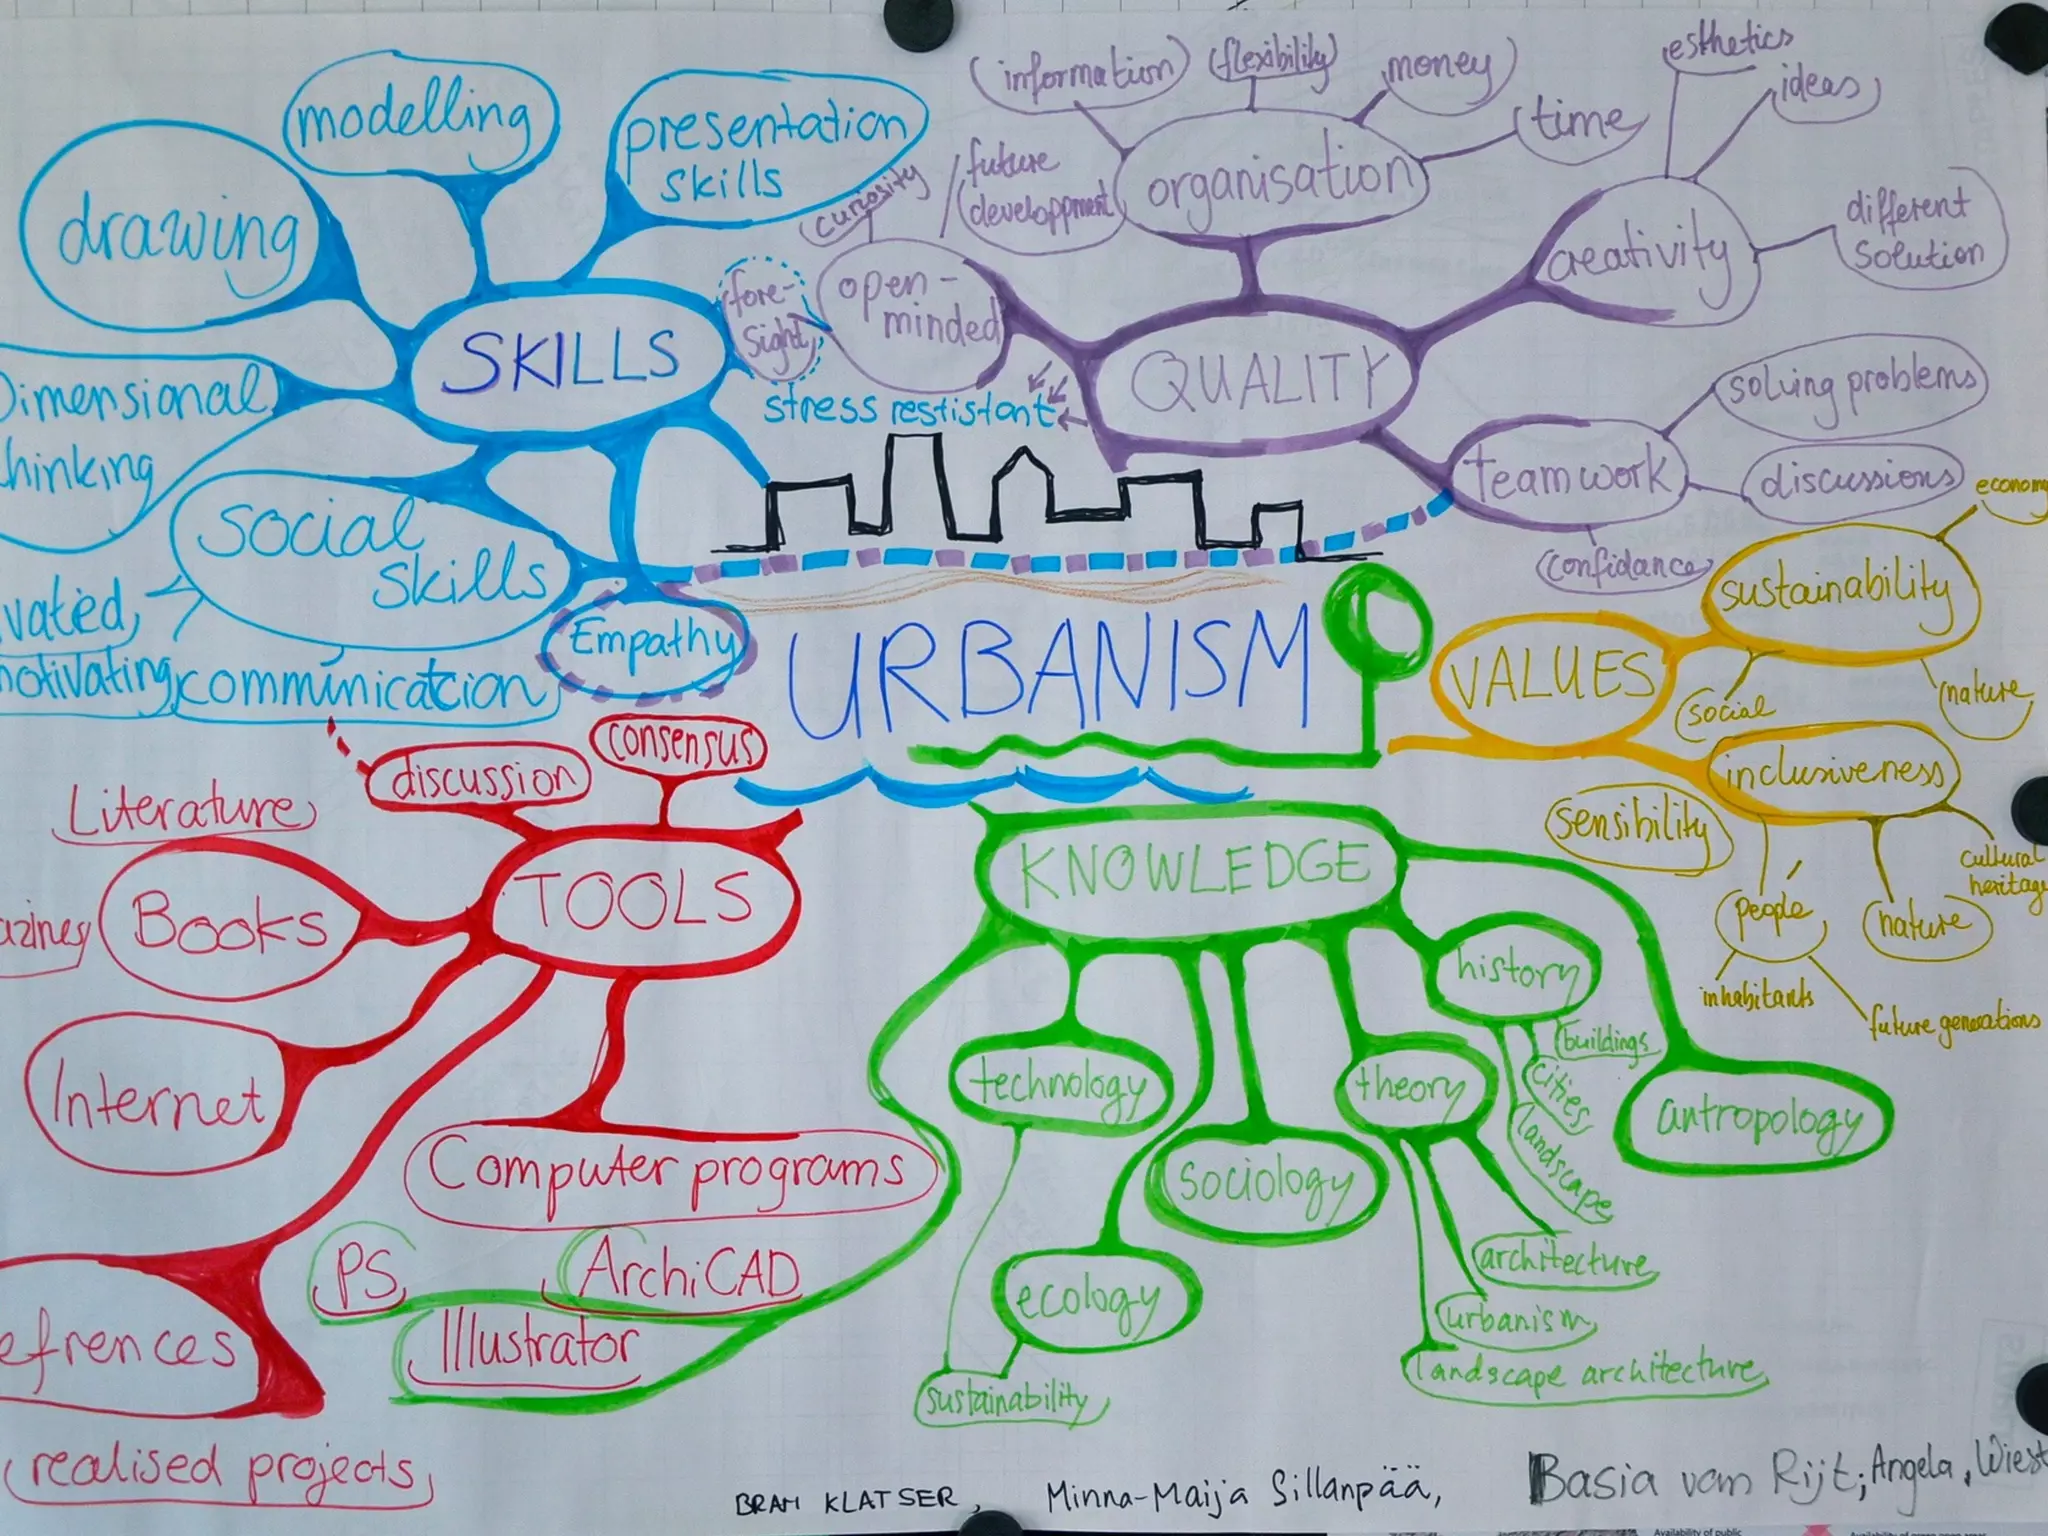 modelling
presentation
skills
drawing
SKILLS
Dimensional
thinking
social
skills
vated,
motivating
communicatcion
Empathy
fore-
sight
stress restistant
information
flexibility
money
time
organisation
future
developpment
curiosity
open-
minded
QUALITY
esthetics
ideas
creativity
different
solution
solving problems
teamwork
discussions
confidance
URBANISM
VALUES
sustainability
economy
social
nature
inclusiveness
sensibility
people
nature
cultural
heritage
inhabitants
future generations
consensus
discussion
Literature
TOOLS
Books
azines
Internet
Computer programs
PS
ArchiCAD
Illustrator
efrences
realised projects
KNOWLEDGE
history
buildings
cities
landscape
technology
theory
antropology
sociology
ecology
sustainability
architecture
urbanism
landscape architecture
BRAM KLATSER,
Minna-Maija Sillanpää,
Basia van Rijt; Angela, Wiest
Availability of public